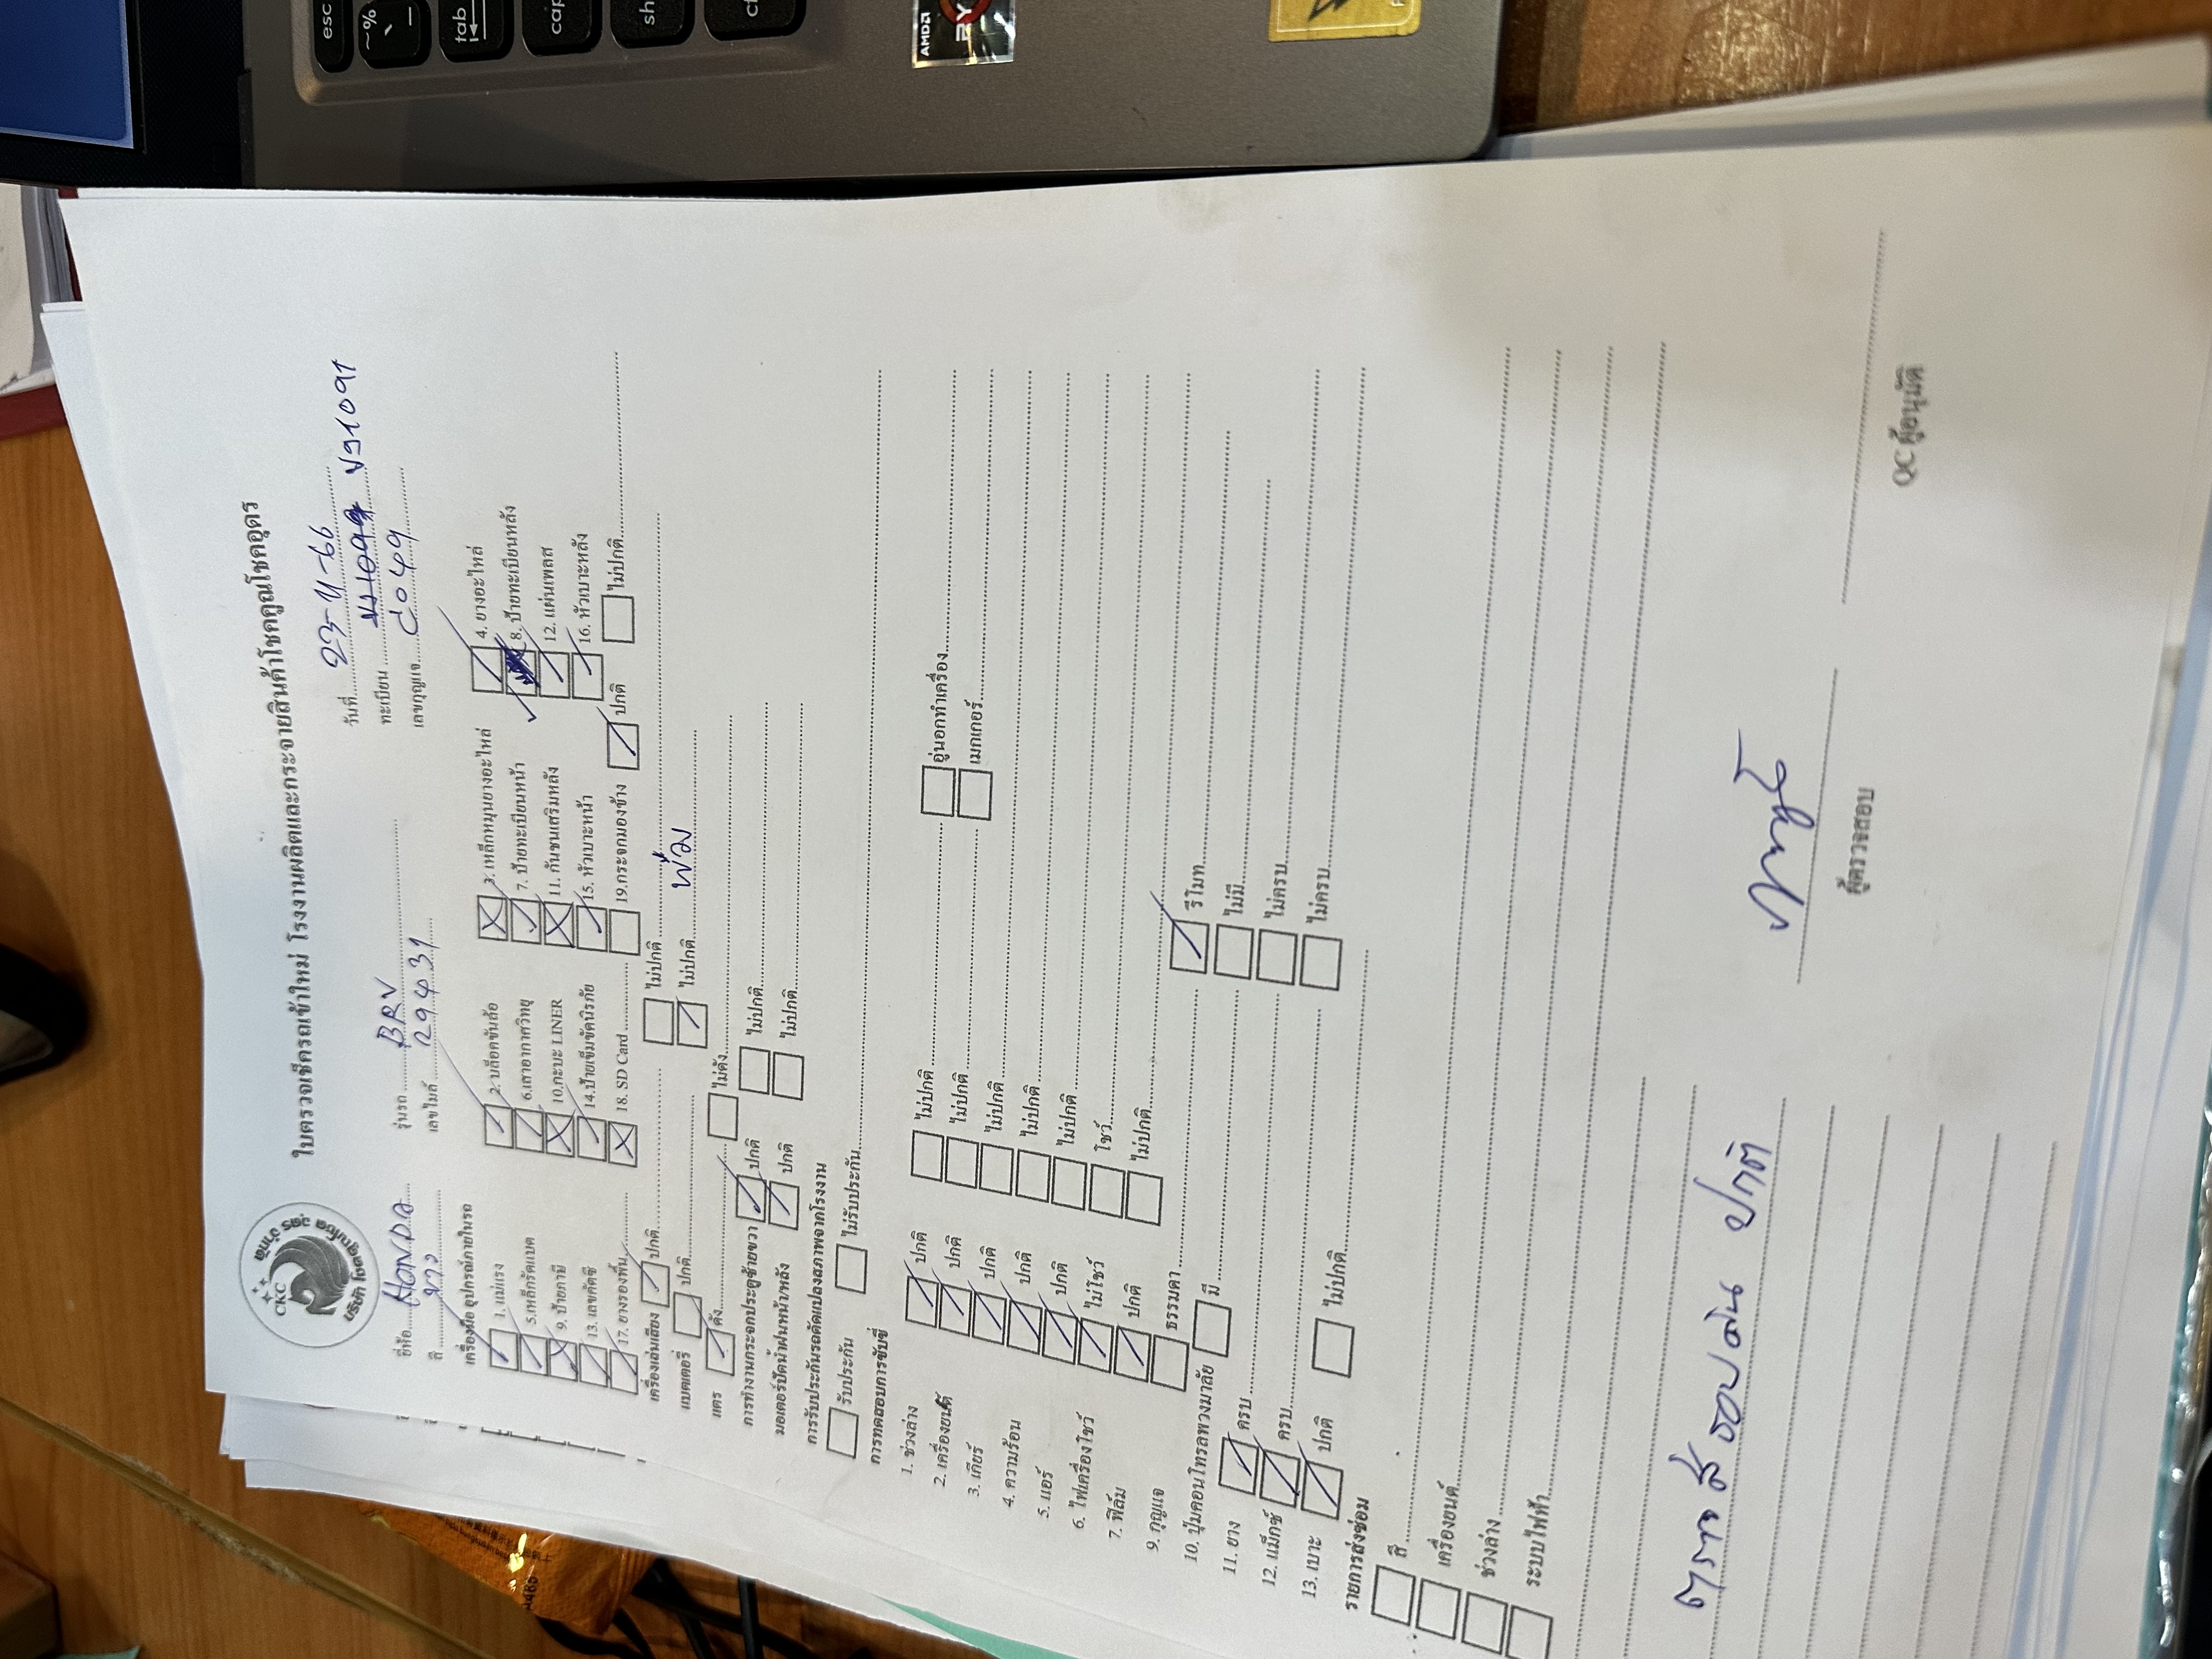 esc
~ %
tab
cap
sh
AMDA
RY
CKC
บริษัท โชคคูณโชค อุดร จำกัด
ใบตรวจเช็ครถเข้าใหม่ โรงงานผลิตและกระจายสินค้าโชคคูณโชคอุดร
วันที่ 23-11-66
ยี่ห้อ HONDA รุ่นรถ BRV ทะเบียน ขว1097
สี ขาว เลขไมล์ 29431 เลขกุญแจ C049
เครื่องมือ อุปกรณ์ภายในรถ
1. แม่แรง 2. บล็อคขันล้อ 3. เหล็กหมุนยางอะไหล่ 4. ยางอะไหล่
5.เหล็กรัดแบต 6.เสาอากาศวิทยุ 7. ป้ายทะเบียนหน้า 8. ป้ายทะเบียนหลัง
9. ป้ายภาษี 10.กะบะ LINER 11. กันชนเสริมหลัง 12. แผ่นเพลส
13. เลขคัสซี 14.ป้ายเข็มขัดนิรภัย 15. หัวเบาะหน้า 16. หัวเบาะหลัง
17. ยางรองพื้น 18. SD Card 19.กระจกมองข้าง ปกติ ไม่ปกติ
เครื่องเล่นเสียง ปกติ ไม่ปกติ
แบตเตอรี่ ปกติ ไม่ปกติ พ่วง
แตร ดัง ไม่ดัง
การทำงานกระจกประตูซ้ายขวา ปกติ ไม่ปกติ
มอเตอร์ปัดน้ำฝนหน้า/หลัง ปกติ ไม่ปกติ
การรับประกันรถดัดแปลงสภาพจากโรงงาน
รับประกัน ไม่รับประกัน
การทดสอบการขับขี่
1. ช่วงล่าง ปกติ ไม่ปกติ อู่นอกทำเครื่อง
2. เครื่องยนต์ ปกติ ไม่ปกติ เมกเกอร์
3. เกียร์ ปกติ ไม่ปกติ
4. ความร้อน ปกติ ไม่ปกติ
5. แอร์ ปกติ ไม่ปกติ
6. ไฟเครื่องโชว์ ไม่โชว์ โชว์
7. ฟิล์ม ปกติ ไม่ปกติ
9. กุญแจ ธรรมดา รีโมท
10. ปุ่มคอนโทรลพวงมาลัย มี ไม่มี
11. ยาง ครบ ไม่ครบ
12. แม็กซ์ ครบ ไม่ครบ
13. เบาะ ปกติ ไม่ปกติ
รายการส่งซ่อม
สี
เครื่องยนต์
ช่วงล่าง
ระบบไฟฟ้า
ปกติ
ผู้ตรวจสอบ
QC ผู้อนุมัติ